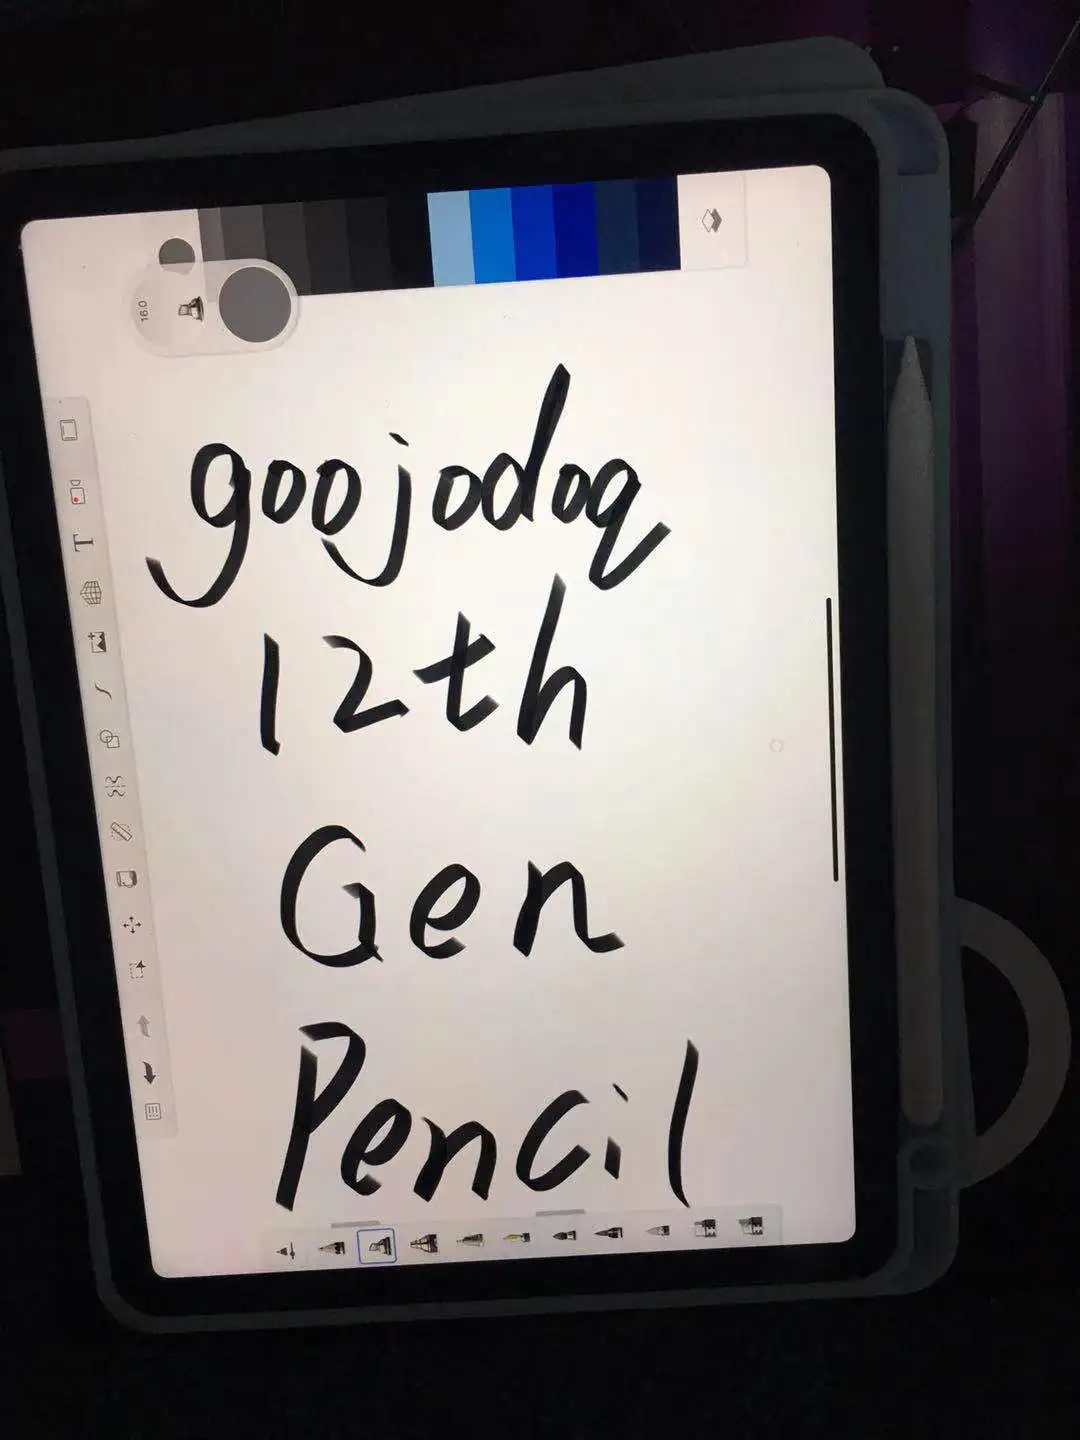 16.0
T
goojodoq
12th
Gen
Pencil